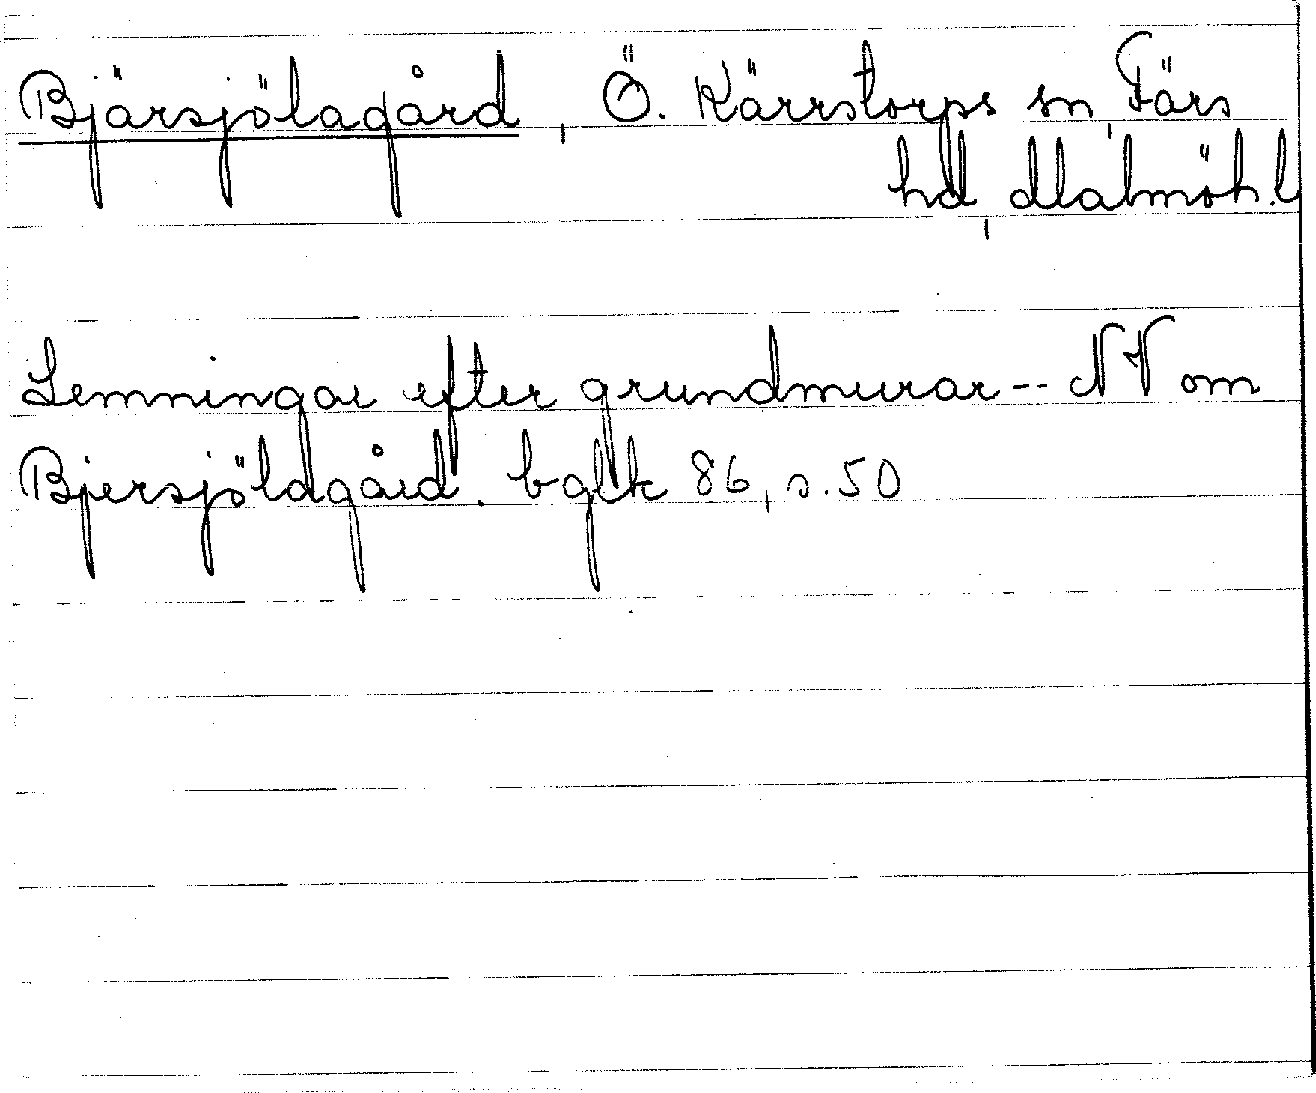 Bjärsjölagård, Ö. Kärrstorps sn, Färs
hd, Malmöh. l
Lemningar efter grundmurar -- NV om
Bjersjöldgård. bglk 86, s. 50